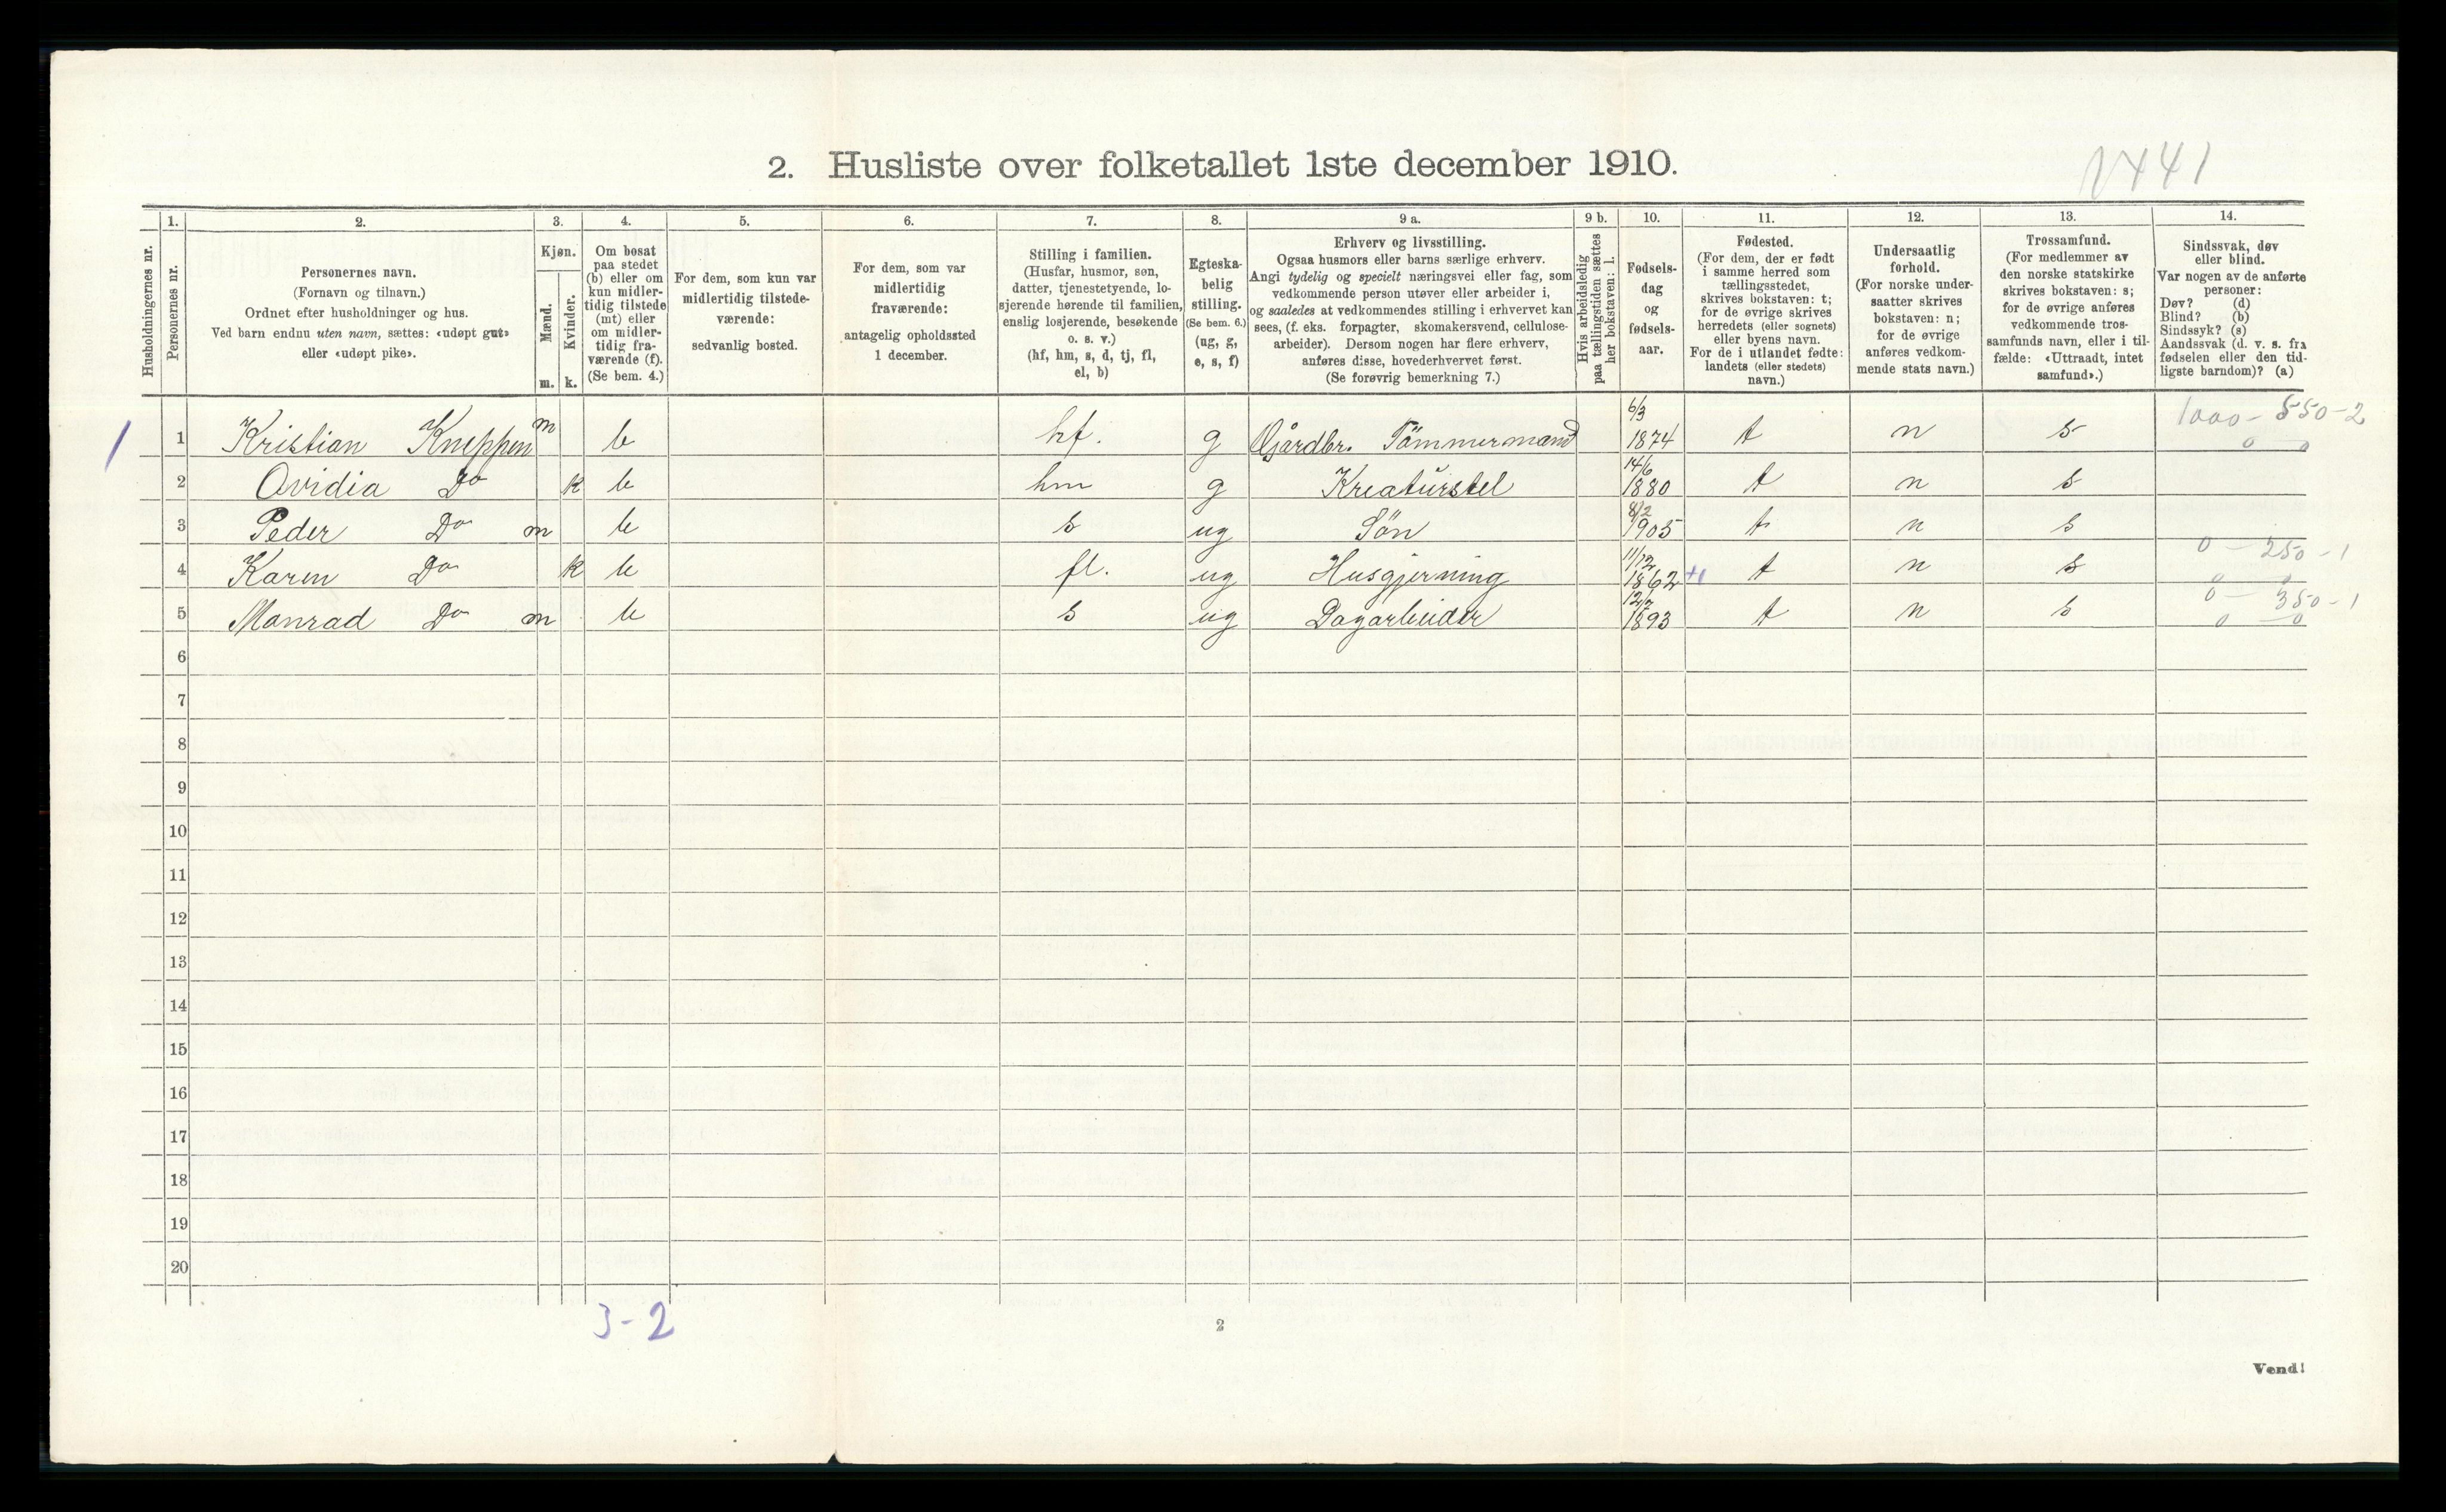 2. Husliste over folketallet 1ste december 1910.
1441
Husholdningernes nr.
1. Personernes nr.
2. Personernes navn.
(Fornavn og tilnavn.)
Ordnet efter husholdninger og hus.
Ved barn endnu uten navn, sættes: «udøpt gut»
eller «udøpt pike».
3. Kjøn.
Mænd. m.
Kvinder. k.
4. Om bosat
paa stedet
(b) eller om
kun midler-
tidig tilstede
(mt) eller
om midler-
tidig fra-
værende (f).
(Se bem. 4.)
5. For dem, som kun var
midlertidig tilstede-
værende:
sedvanlig bosted.
6. For dem, som var
midlertidig
fraværende:
antagelig opholdssted
1 december.
7. Stilling i familien.
(Husfar, husmor, søn,
datter, tjenestetyende, lo-
sjerende hørende til familien,
enslig losjerende, besøkende
o. s. v.)
(hf, hm, s, d, tj, fl,
el, b)
8. Egteska-
belig
stilling.
(Se bem. 6.)
(ug, g,
e, s, f)
9 a. Erhverv og livsstilling.
Ogsaa husmors eller barns særlige erhverv.
Angi tydelig og specielt næringsvei eller fag, som
vedkommende person utøver eller arbeider i,
og saaledes at vedkommendes stilling i erhvervet kan
sees, (f. eks. forpagter, skomakersvend, cellulose-
arbeider). Dersom nogen har flere erhverv,
anføres disse, hovederhvervet først.
(Se forøvrig bemerkning 7.)
9 b. Hvis arbeidsledig
paa tællingstiden sættes
her bokstaven: l.
10. Fødsels-
dag
og
fødsels-
aar.
11. Fødested.
(For dem, der er født
i samme herred som
tællingsstedet,
skrives bokstaven: t;
for de øvrige skrives
herredets (eller sognets)
eller byens navn.
For de i utlandet fødte:
landets (eller stedets)
navn.)
12. Undersaatlig
forhold.
(For norske under-
saatter skrives
bokstaven: n;
for de øvrige
anføres vedkom-
mende stats navn.)
13. Trossamfund.
(For medlemmer av
den norske statskirke
skrives bokstaven: s;
for de øvrige anføres
vedkommende tros-
samfunds navn, eller i til-
fælde: «Uttraadt, intet
samfund».)
14. Sindssvak, døv
eller blind.
Var nogen av de anførte
personer:
Døv? (d)
Blind? (b)
Sindssyk? (s)
Aandssvak (d. v. s. fra
fødselen eller den tid-
ligste barndom)? (a)
1 1 Kristian Kneppen m b hf. g Gårdbr. Tömmermand 6/3 1874 t n s 1000 - 550 - 2 0 0
2 Ovidia Do k b hm g Kreaturstel 14/6 1880 t n s
3 Peder Do m b s ug Sön 8/2 1905 t n s
4 Karen Do k b fl. ug Husgjerning 11/12 1862 t n s 0 - 250 - 1 0 0
5 Monrad Do m b s ug Dagarbeider 1893 t n s 0 - 350 - 1 0 0
6
7
8
9
10
11
12
13
14
15
16
17
18
19
20
3-2
2
Vend!